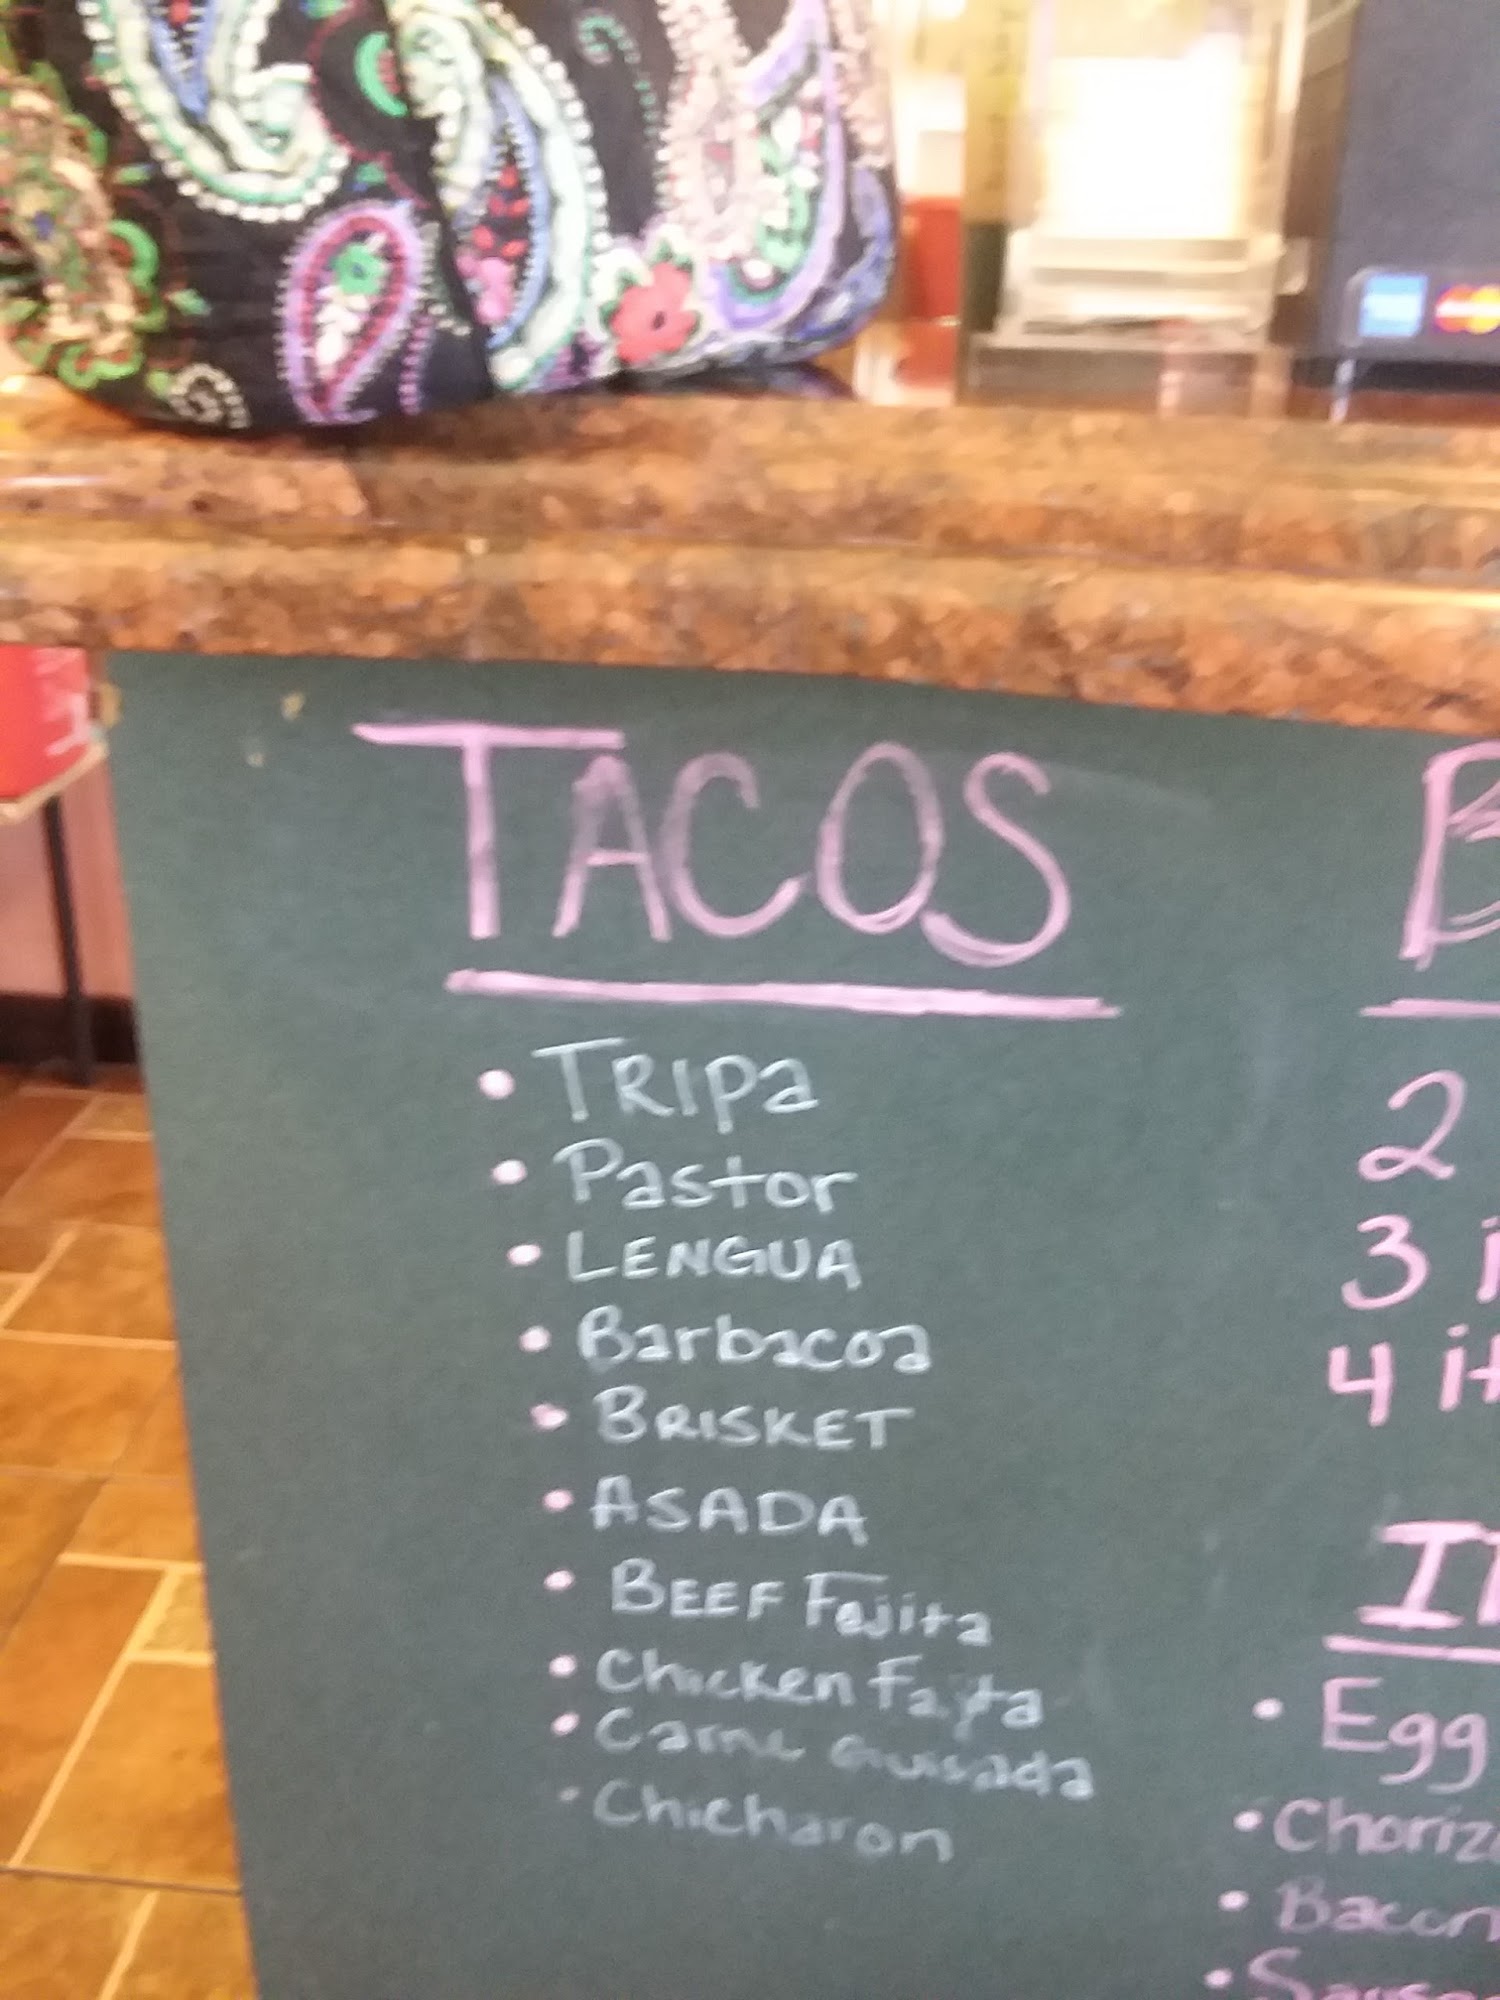 TACOS
• TRIPa
• Pastor
• LENGUA
• Barbacoa
• BRISKET
• ASADA
• BEEF Fajita
• Chicken Fajita
• Carne Guisada
• Chicharon
2
3
4
• Egg